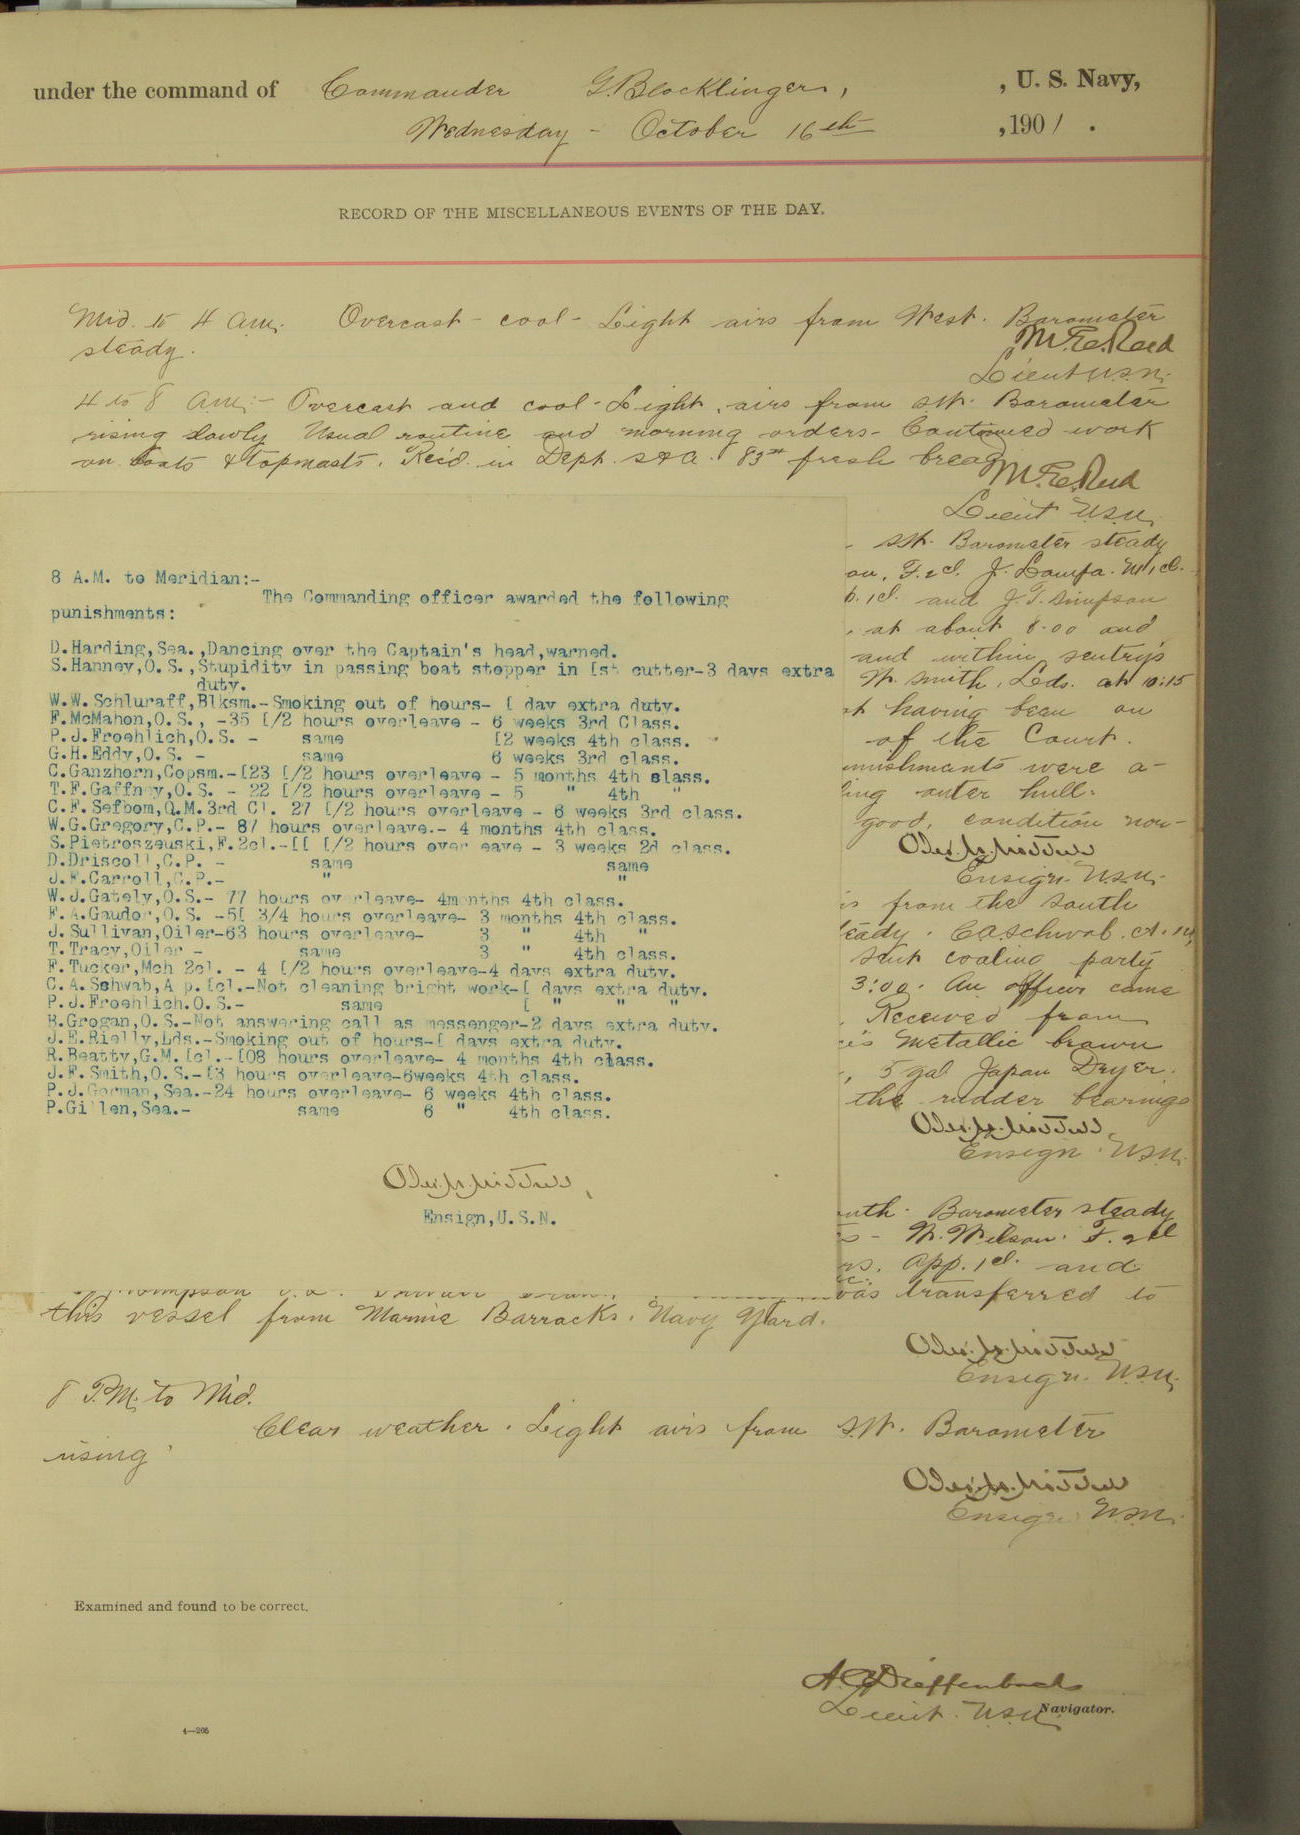 under the command of Commander G. Blocklinger, , U. S. Navy,
Wednesday - October 16th ,1901 .
RECORD OF THE MISCELLANEOUS EVENTS OF THE DAY.
Mid. to 4 a.m. Overcast - cool - Light airs from West. Barometer
steady.
M.E. Reed
Lieut U.S.N.
4 to 8 a.m.- Overcast and cool - Light airs from SW. Barometer
rising slowly Usual routine and morning orders - Continued work
on boats & topmasts. Rec'd. in Dept. S & A. 83 fresh bread
M.E. Reed
Lieut U.S.N.
8 A.M. to Meridian:-
The Commanding officer awarded the following
punishments:
D.Harding,Sea.,Dancing over the Captain's head,warned.
S.Hanney,O.S.,Stupidity in passing boat stopper in [st cutter-3 days extra
duty.
W.W.Schluraff,Blksm.-Smoking out of hours- [ day extra duty.
F.McMahon,O.S., -35 [/2 hours overleave - 6 weeks 3rd Class.
P.J.Froehlich,O.S. - same [2 weeks 4th class.
G.H.Eddy,O.S. - same 6 weeks 3rd class.
C.Ganzhorn,Copsm.-[23 [/2 hours overleave - 5 months 4th class.
T.F.Gaffney,O.S. - 22 [/2 hours overleave - 5 " 4th "
C.F.Sefbom,Q.M.3rd Cl. 27 [/2 hours overleave - 6 weeks 3rd class.
W.G.Gregory,C.P.- 87 hours overleave.- 4 months 4th class.
S.Pietroszeuski,F.2cl.-[[ [/2 hours over eave - 3 weeks 2d class.
D.Driscoll,C.P. - same same
J.F.Carroll,C.P.- " "
W.J.Gately,O.S.- 77 hours overleave- 4m nths 4th class.
F.A.Gaudor,O.S. -5[ 3/4 hours overleave- 3 months 4th class.
J.Sullivan,Oiler-63 hours overleave- 3 " 4th "
T.Tracy,Oiler - same 3 " 4th class.
F.Tucker,Mch 2cl. - 4 [/2 hours overleave-4 days extra duty.
C.A.Schwab,A p.[cl.-Not cleaning bright work-[ days extra duty.
P.J.Froehlich.O.S.- same [ " " "
B.Grogan,O.S.-Not answering call as messenger-2 days extra duty.
J.E.Rielly,Lds.-Smoking out of hours-[ days extra duty.
R.Beatty,G.M.[cl.-[08 hours overleave- 4 months 4th class.
J.F.Smith,O.S.-[3 hours overleave-6weeks 4th class.
P.J.Gorman,Sea.-24 hours overleave- 6 weeks 4th class.
P.Gillen,Sea.- same 6 " 4th class.
Ensign,U.S.N.
SW. Barometer steady
on, F.2cl. J.
p. 1cl. and J.T. Simpson
at about 8.00 and
and within sentry's
W. Smith, Lds. at 10:15
having been on
of the Court.
punishments were a-
outer hull.
good, condition nor-
Ensign U.S.N.
from the South
steady. C.A. Schwab. A.
sent coaling party
3:00. An officer came
Received from
metallic brown
5 gal Japan Dryer.
the rudder bearings
Ensign U.S.N.
Barometer steady
W. Wilson. F. 2cl
App. 1cl. and
was transferred to
this vessel from Marine Barracks. Navy Yard.
Ensign. U.S.N.
8 P.M. to Mid.
Clear weather. Light airs from SW. Barometer
rising
Ensign U.S.N.
Examined and found to be correct.
A. Dieffenbach
Lieut. U.S.N. Navigator.
4—205